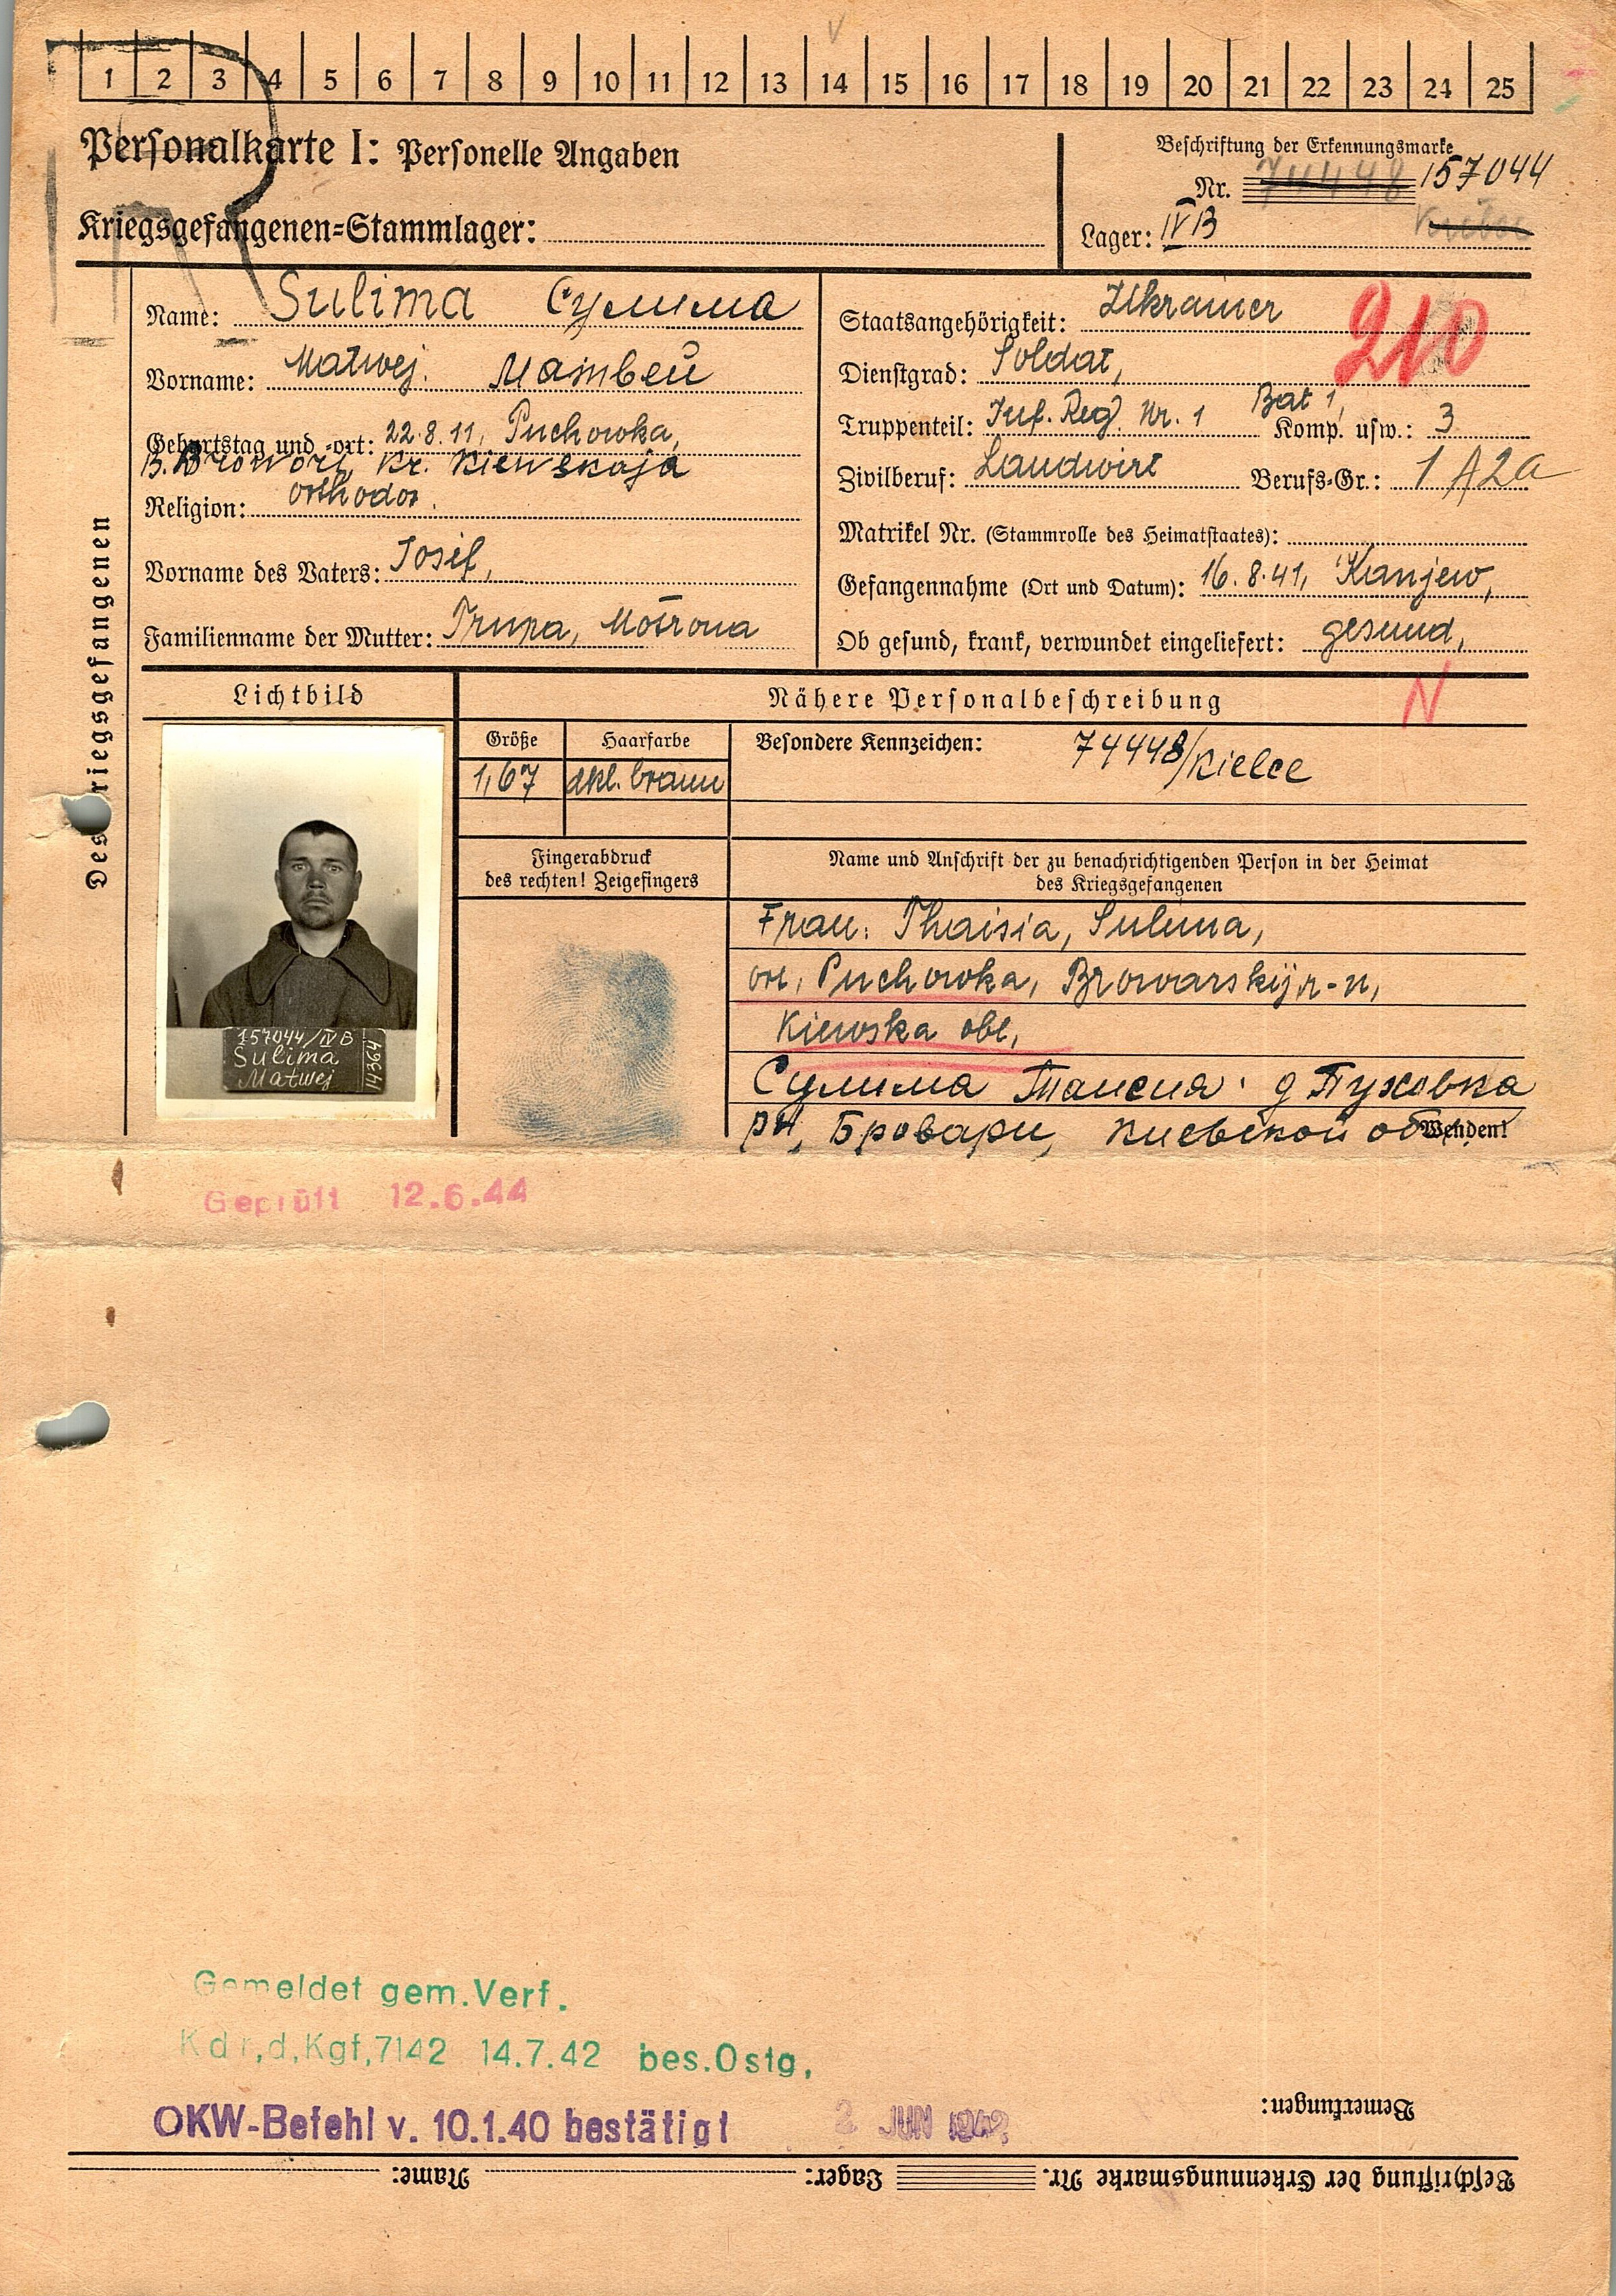 1 2 3 4 5 6 7 8 9 10 11 12 13 14 15 16 17 18 19 20 21 22 23 24 25
Personalkarte I: Personelle Angaben
Beschriftung der Erkennungsmarke
Nr. 74448 157044
Kriegsgefangenen-Stammlager:
Lager: IV B
Des Kriegsgefangenen
Name: Sulima Сулима
Vorname: Matwej. Матвей
Geburtstag und -ort: 22.8.11, Puchowka,
Kr. Kiewskaja
Religion: orthodox.
Vorname des Vaters: Josif,
Familienname der Mutter: Motrona
Staatsangehörigkeit: Ukrainer
210
Dienstgrad: Soldat,
Truppenteil: Inf. Reg. Nr. 1 Bat 1, Komp. usw.: 3
Zivilberuf: Landwirt Berufs-Gr.: 1 A2a
Matrikel Nr. (Stammrolle des Heimatstaates):
Gefangennahme (Ort und Datum): 16.8.41, Kanjew,
Ob gesund, krank, verwundet eingeliefert: gesund,
N
Lichtbild
Nähere Personalbeschreibung
Größe
Haarfarbe
Besondere Kennzeichen: 74448/Kielce
1,67
dkl. braun
157044/IV B
Sulima
Matwej
14364
Fingerabdruck
des rechten! Zeigefingers
Name und Anschrift der zu benachrichtigenden Person in der Heimat
des Kriegsgefangenen
Frau: Thaisia, Sulima,
ort, Puchowka, Browarskij r-n,
Kiewska obl,
Сулима Таисия д Пуховка
рн, Бровари, киевской
Wenden!
Geprüft 12.6.44
Gemeldet gem. Verf.
Kdr,d,Kgf,7142 14.7.42 bes.Ostg,
OKW-Befehl v. 10.1.40 bestätigt 2 JUN 1942
Bemerkungen:
Beschriftung der Erkennungsmarke Nr. Lager: Name: